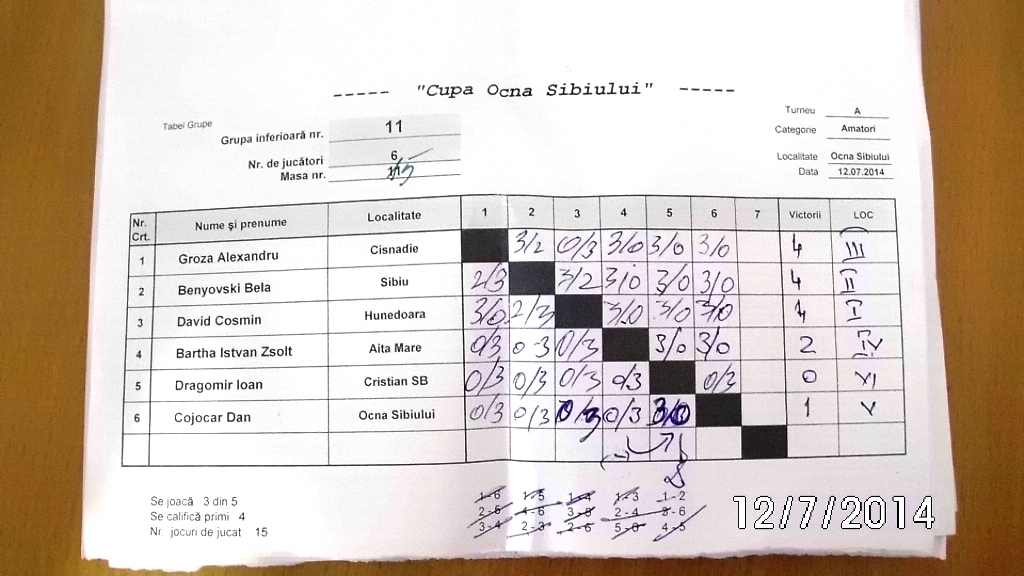 ----- "Cupa Ocna Sibiului" -----
Tabel Grupe
Turneu A
Grupa inferioară nr. 11
Categorie Amatori
Nr. de jucători 6
Localitate Ocna Sibiului
Masa nr.
Data 12.07.2014
Nr. Crt. Nume și prenume Localitate 1 2 3 4 5 6 7 Victorii LOC
1 Groza Alexandru Cisnadie 3/2 0/3 3/0 3/0 3/0 4 III
2 Benyovski Bela Sibiu 2/3 3/2 3/0 3/0 3/0 4 II
3 David Cosmin Hunedoara 3/0 2/3 3/0 3/0 3/0 4 I
4 Bartha Istvan Zsolt Aita Mare 0/3 0-3 0/3 3/0 3/0 2 IV
5 Dragomir Ioan Cristian SB 0/3 0/3 0/3 0/3 0/3 0 VI
6 Cojocar Dan Ocna Sibiului 0/3 0/3 0/3 0/3 3/0 1 V
Se joacă 3 din 5
Se califică primi 4
Nr. jocuri de jucat 15
1-6 1-5 1-4 1-3 1-2
2-5 4-6 3-5 2-4 3-6
3-4 2-3 2-6 5-6 4-5
12/7/2014